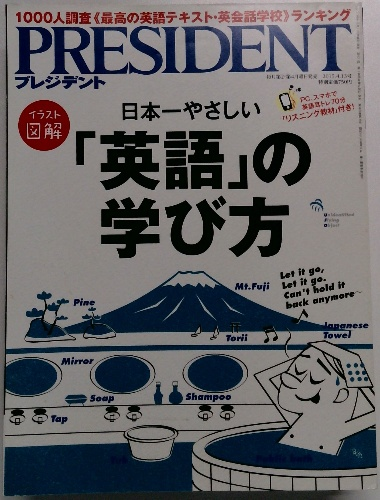 1000人調査《最高の英語テキスト・英会話学校》ランキング
PRESIDENT
プレジデント
イラスト
図解
日本一やさしい
PC、スマホで
英語耳トレ70分
「リスニング教材」付き!
「英語」の
学び方
Unidentified
Flying
Object
Mt.Fuji
Let it go,
Let it go.
Can't hold it
back anymore~
Pine
Torii
Japanese
Towel
Mirror
Soap
Shampoo
Tap